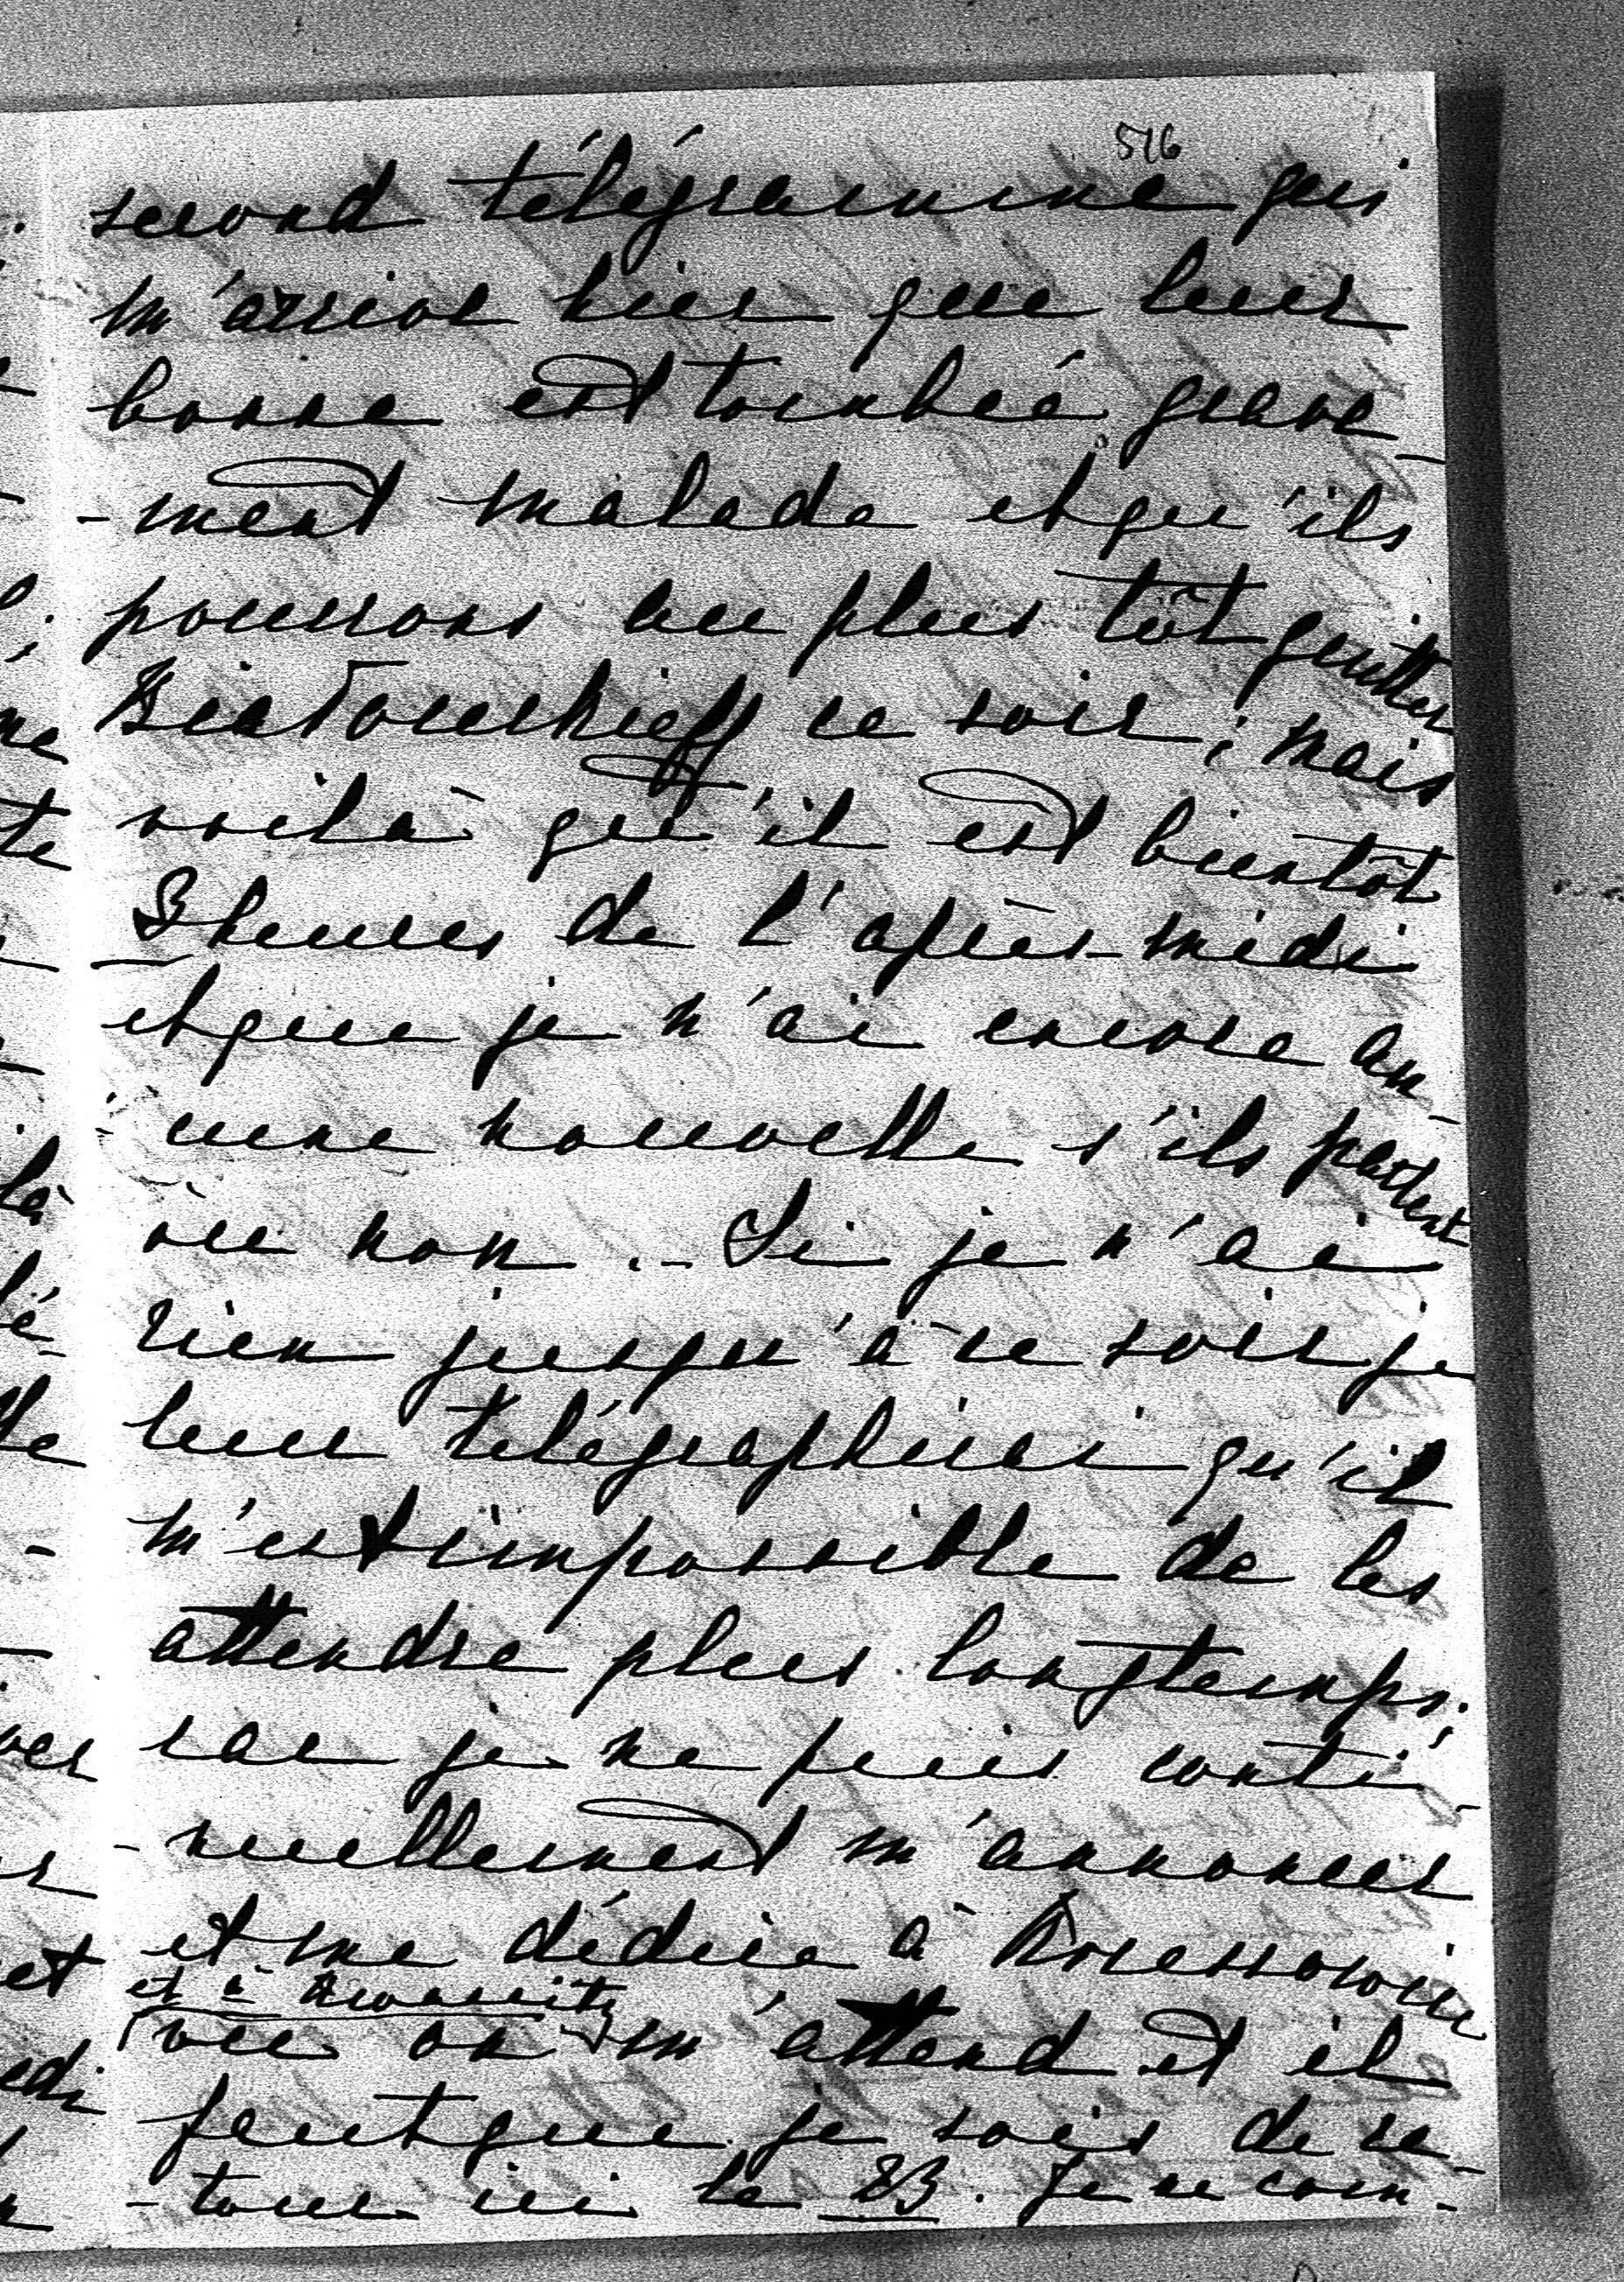 516
second télégramme qui
m'arrive hier que leur
bonne est tombée grave-
-ment malade et qu'ils
pourrons au plus tôt quitter
ce soir; mais
voilà qu'il est bientôt
3 heures de l'après-midi
et que je n'ai encore au-
-cune nouvelle s'ils partent
ou non. - Si je n'ai
rien jusqu'à ce soir je
leur télégraphierai qu'il
m'est impossible de les
attendre plus longtemps;
car je ne puis conti-
-nuellement m'annoncer
et me dédire à
et à
où on m'attend et il
faut que je sois de re-
-tour ici le 23. Je ne com-